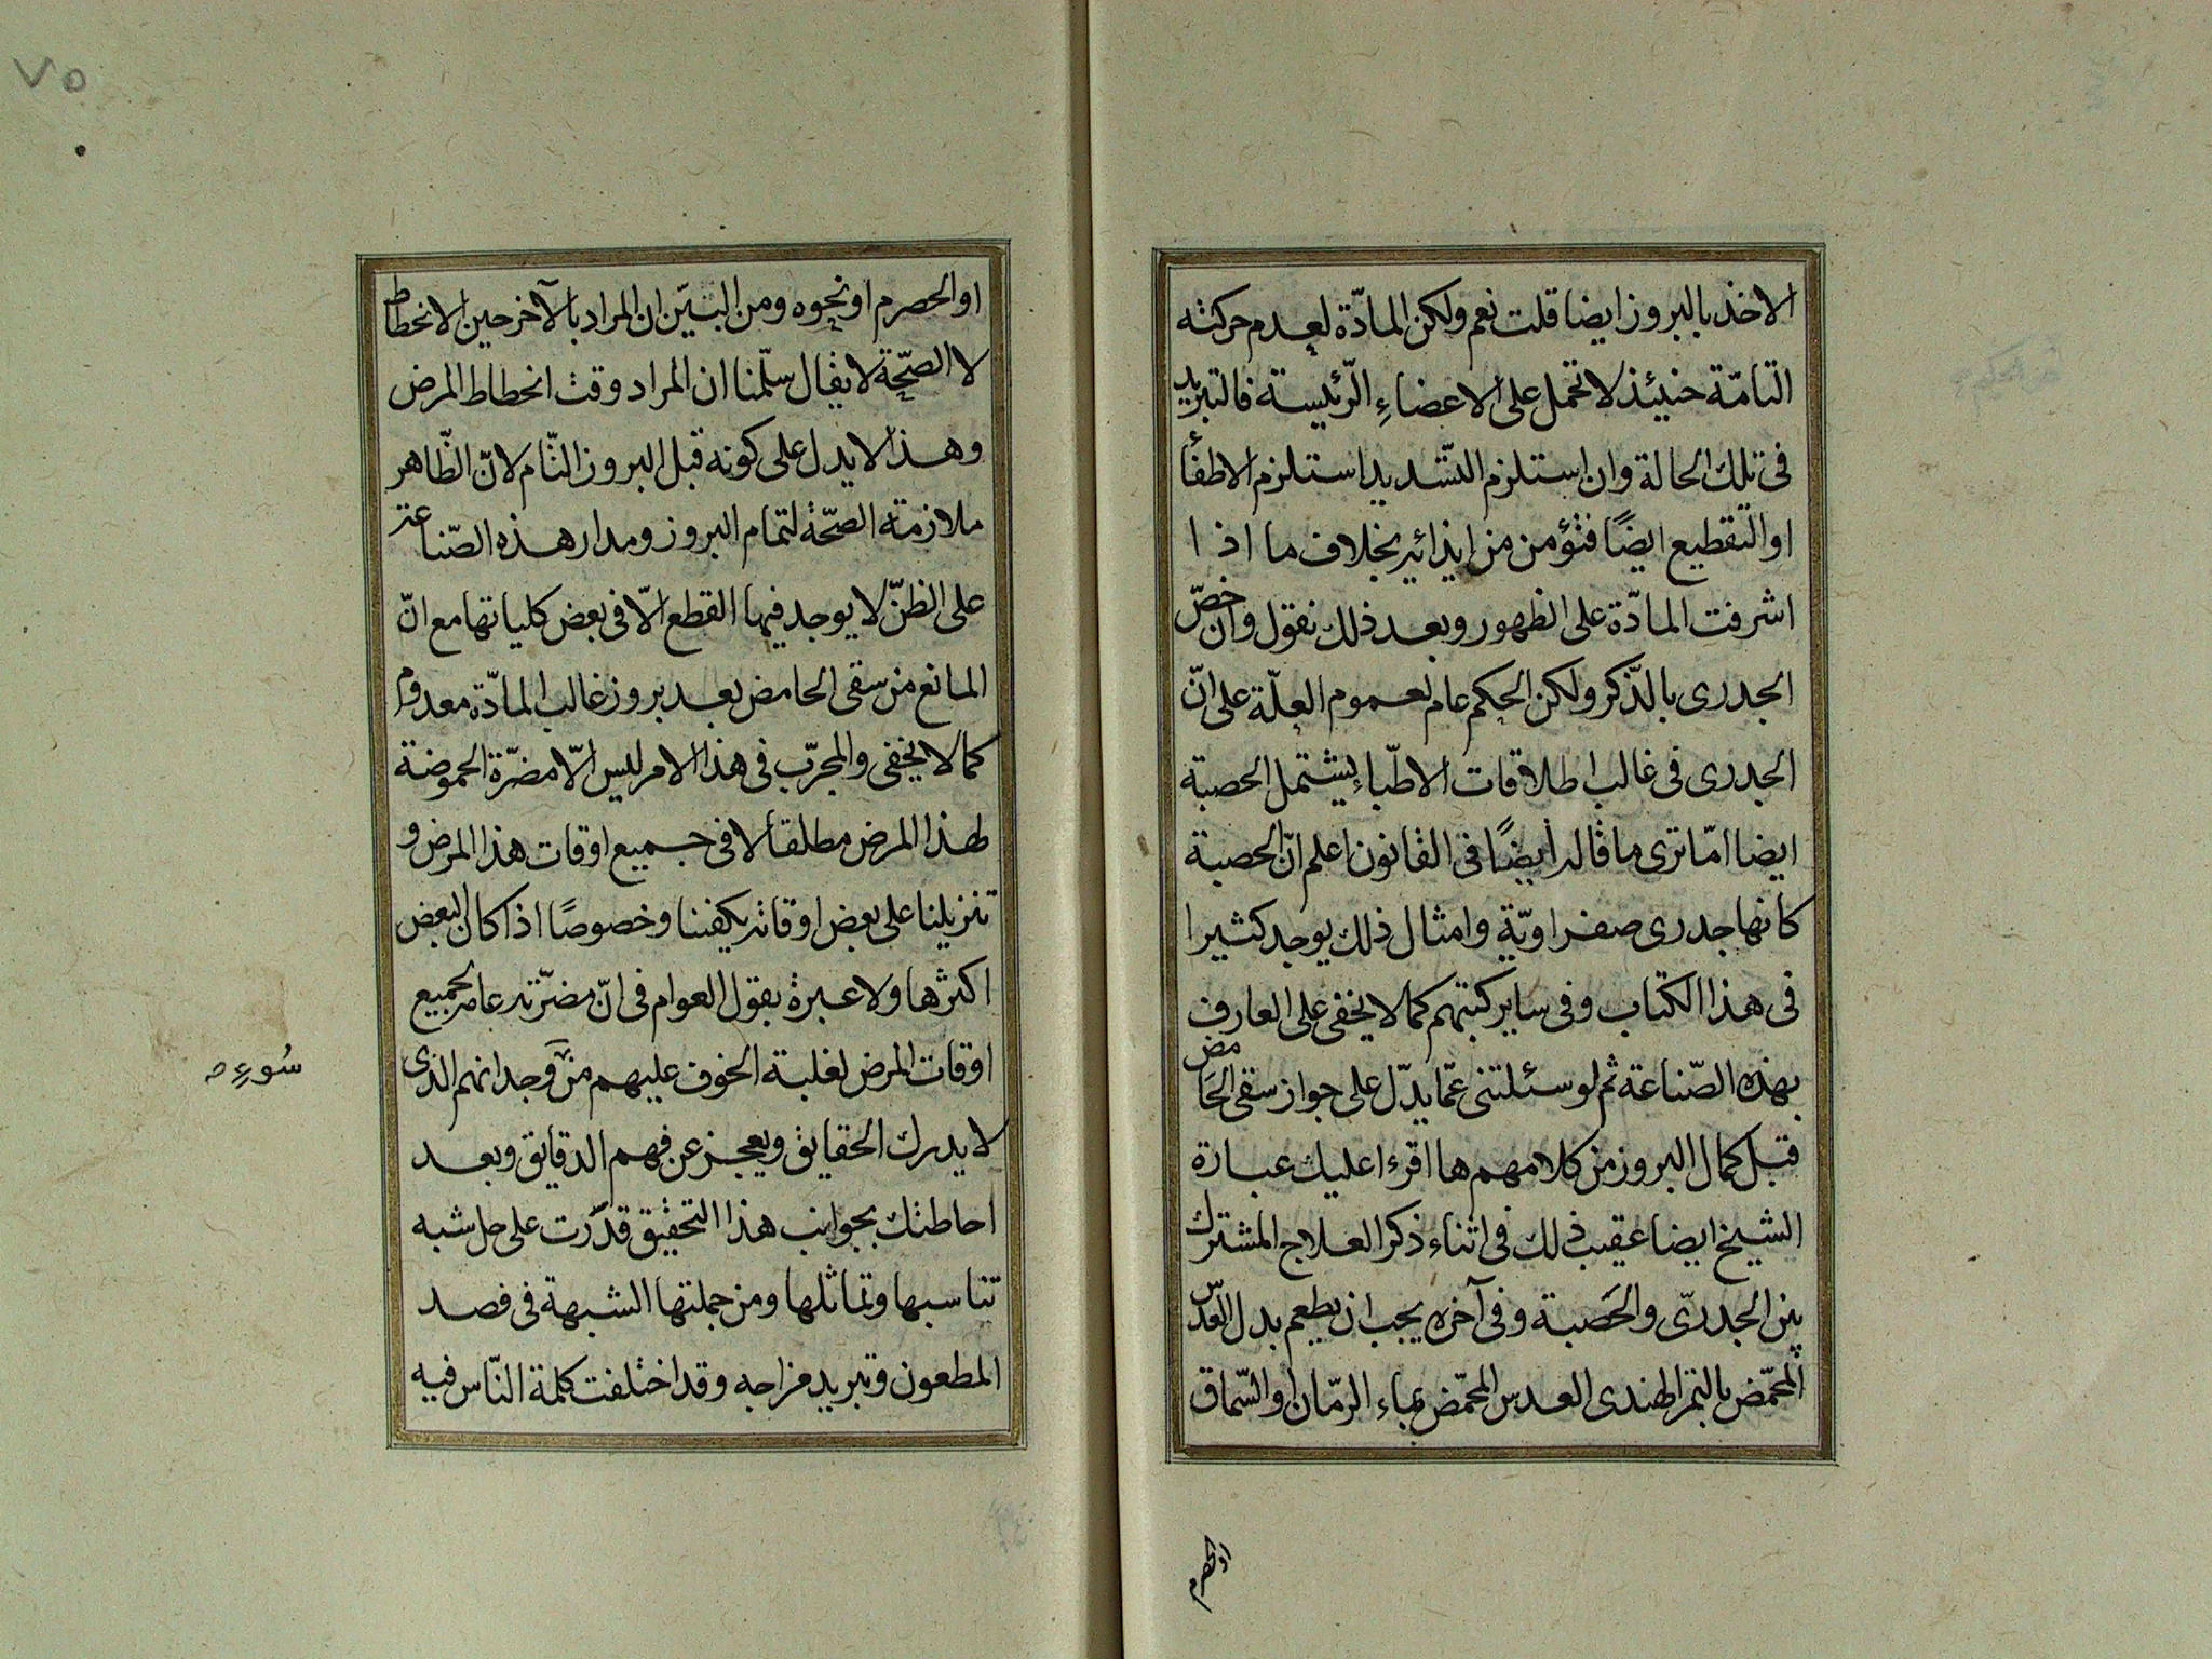 الاخذ بالبروز ايضا قلت نعم ولكن المادّة لعدم حركته
التامّة حنيئذ لا تحمل على الاعضاءِ الرّئيسة فالتبريد
فى تلك الحالة وان استلزم التشديد استلزم الاطفأ
او التقطيع ايضًا فتؤمن من ايذائير بخلاف ما اذا
اشرفت المادّة على الظهور وبعد ذلك نقول وان خصّ
الجدرى بالذّكر ولكن الحكم عام لعموم العلّة على انّ
الجدرى فى غالب اطلاقات الاطبّاء يشتمل الحصبة
ايضا امّا ترى ما قاله أيضًا فى القانون اعلم انّ الحصبة
كانها جدرى صفراويّة وامثال ذلك يوجد كثيرا
فى هذا الكتاب وفى ساير كتبهم كما لا يخفى على العارف
بهذه الصّناعة ثم لو سئلتنى عمّا يدّل على جواز سقى الحَامض
قبل كمال البروز من كلامهم ها اقرء اعليك عبارة
الشيخ ايضا عقيب ذلك فى اثناء ذكر العلاج المشترك
بين الجدرىّ والحَصبة وفى آخره يجب ان يطعم بدل العدّس
المحمّض بالتمر الهندى العدس المحمّض بماء الرمّان او السّماق
او الحصرم
٧٥
او الحصرم او نحوه ومن البيّن ان المراد بالآخر حين الانحطاط
لا الصّحّة لا يقال سلّمنا ان المراد وقت انحطاط المرض
وهذا لا يدل على كونه قبل البروز التّام لانّ الظّاهر
ملازمة الصحّة لتمام البروز ومدار هذه الصّناعة
على الظنّ لا يوجد فيها القطع الّا فى بعض كلياتها مع انّ
المانع من سقى الحامض بعد بروز غالب المادّة معدوم
كما لا يخفى والمجرّب فى هذا الامر ليس الّا مضرّة الحموضة
لهذا المرض مطلقا لا فى جميع اوقات هذا المرض و
تنزيلنا على بعض اوقاته يكفننا وخصوصًا اذا كان البعض
اكثرها ولا عبرة بقول العوام فى انّ مضرّته عامه لجميع
اوقات المرض لغلبة الخوف عليهم من وجدانهم الذى
سُوءِ
لا يدرك الحقايق ويعجز عن فهم الدقايق وبعد
احاطتك بجوانب هذا التحقيق قدّرت على حل شبه
تناسبها وتماثلها ومن جملتها الشبهة فى فصد
المطعون وتبريد مزاجه وقد اختلفت كلمة النّاس فيه